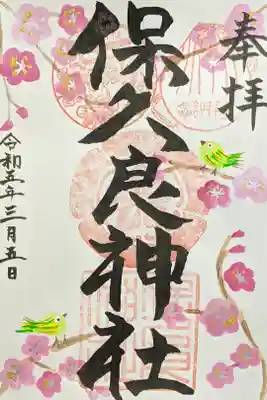 奉拝
保久良神社
令和五年三月五日